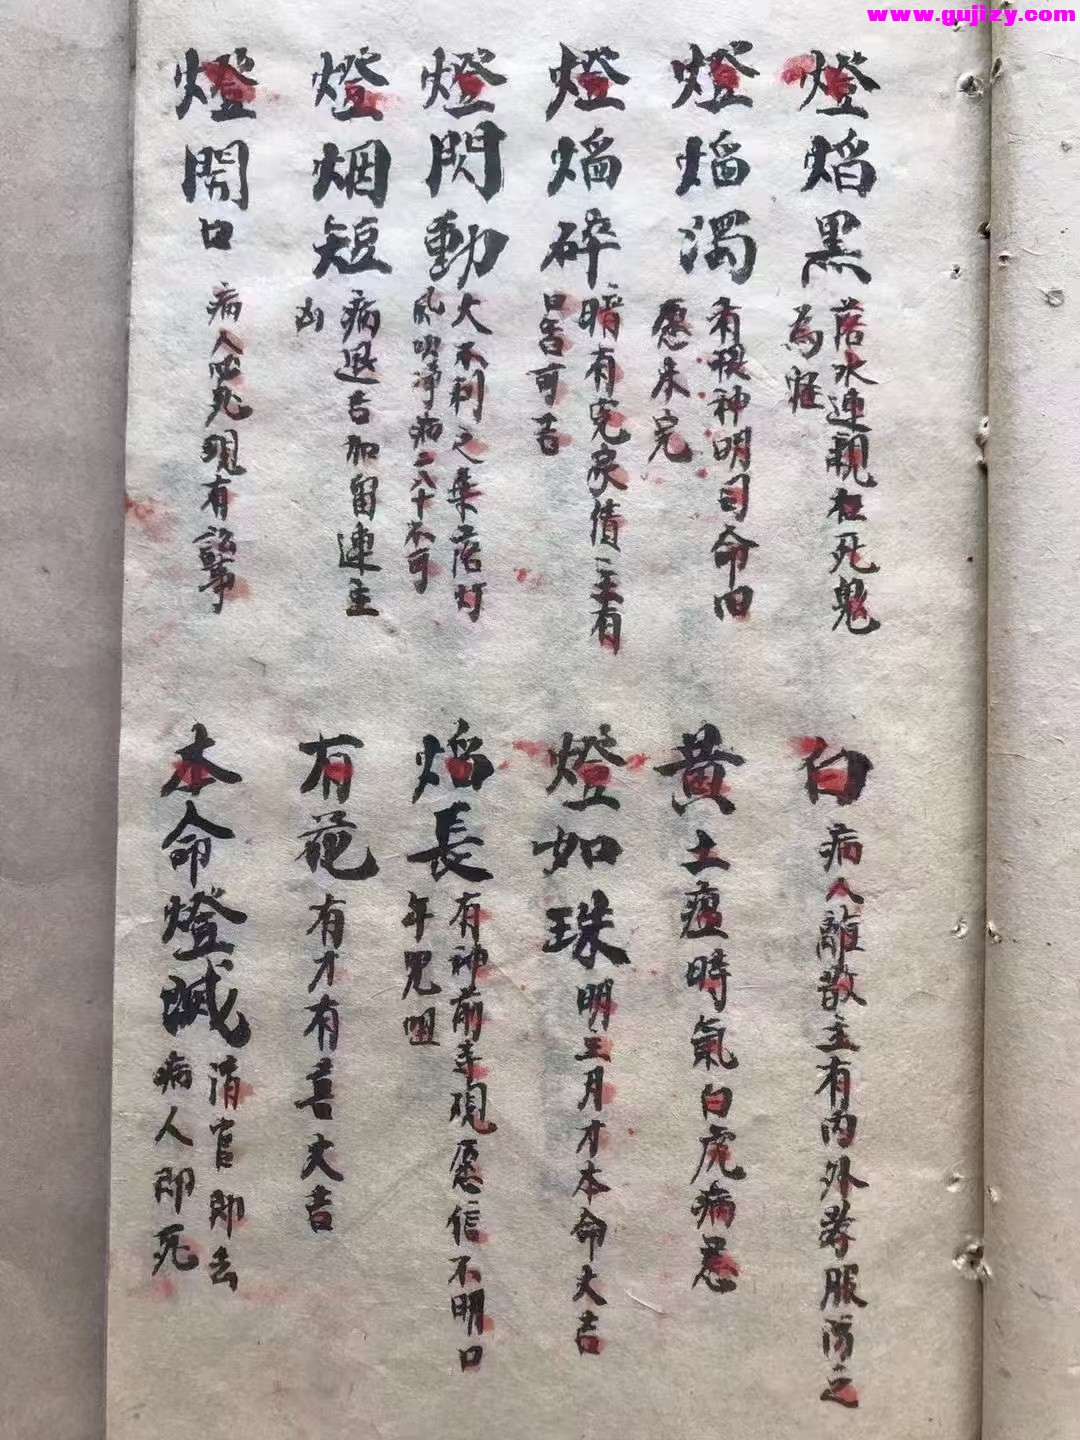 www.gujizy.com
燈焰黑
落水連親在死鬼
為怪
燈焰濁
有犯神明司命旧
愿未完
燈焰碎
暗有冤家債主有
口舌可言
燈閃動
大不利之業落灯
風吹淨病二八十不可
燈烟短
病退吉加留連主
凶
燈開口
病人必死現有訟事
白
病人離散主有内外孝服消之
黃
土瘟時氣白虎病忌
燈如珠
明主月才本命大吉
焰長
有神前寺觀愿信不明口
午咒咀
有花
有才有喜大吉
本命燈滅
消官即去
病人即死